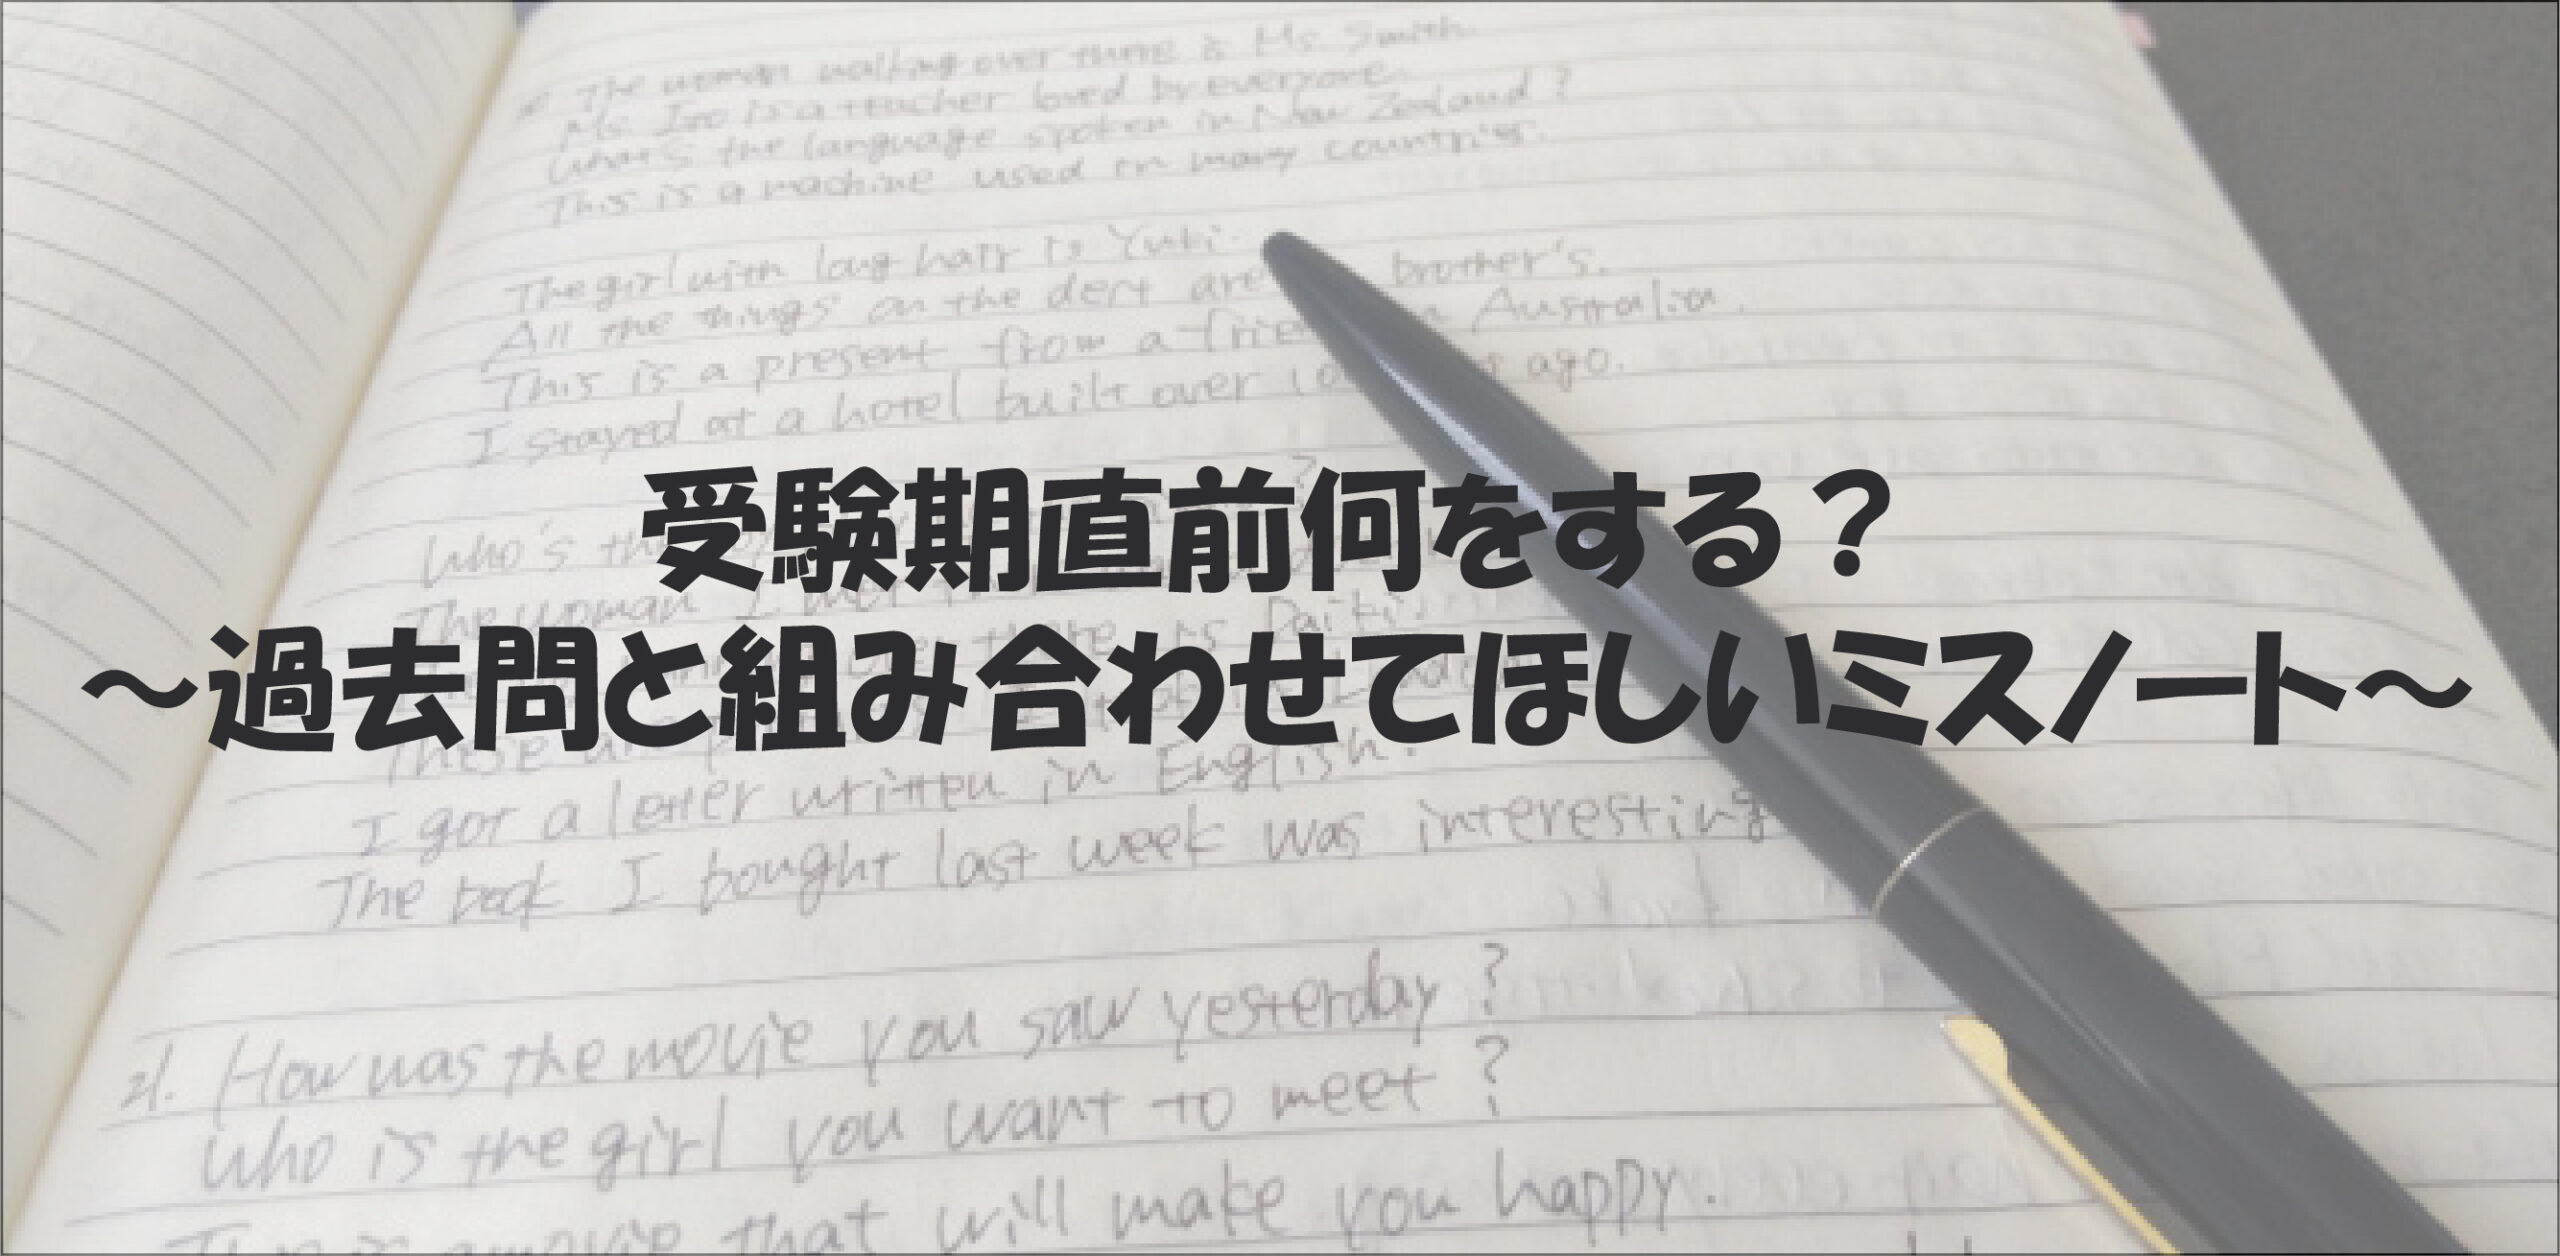 The woman walking over there is Ms. Smith.
Ms. Ito is a teacher loved by everyone.
What's the language spoken in New Zealand?
This is a machine used in many countries.
The girl with long hair is Yuki.
All the things on the are brother's.
This is a present from a Australia.
I stayed at a hotel built over ago.
受験期直前何をする？
Who's
The woman I met
there is Daiki.
～過去問と組み合わせてほしいミスノート～
These
I got a letter written in English.
The book I bought last week was interesting
21. How was the movie you saw yesterday?
Who is the girl you want to meet?
This is a movie that will make you happy.